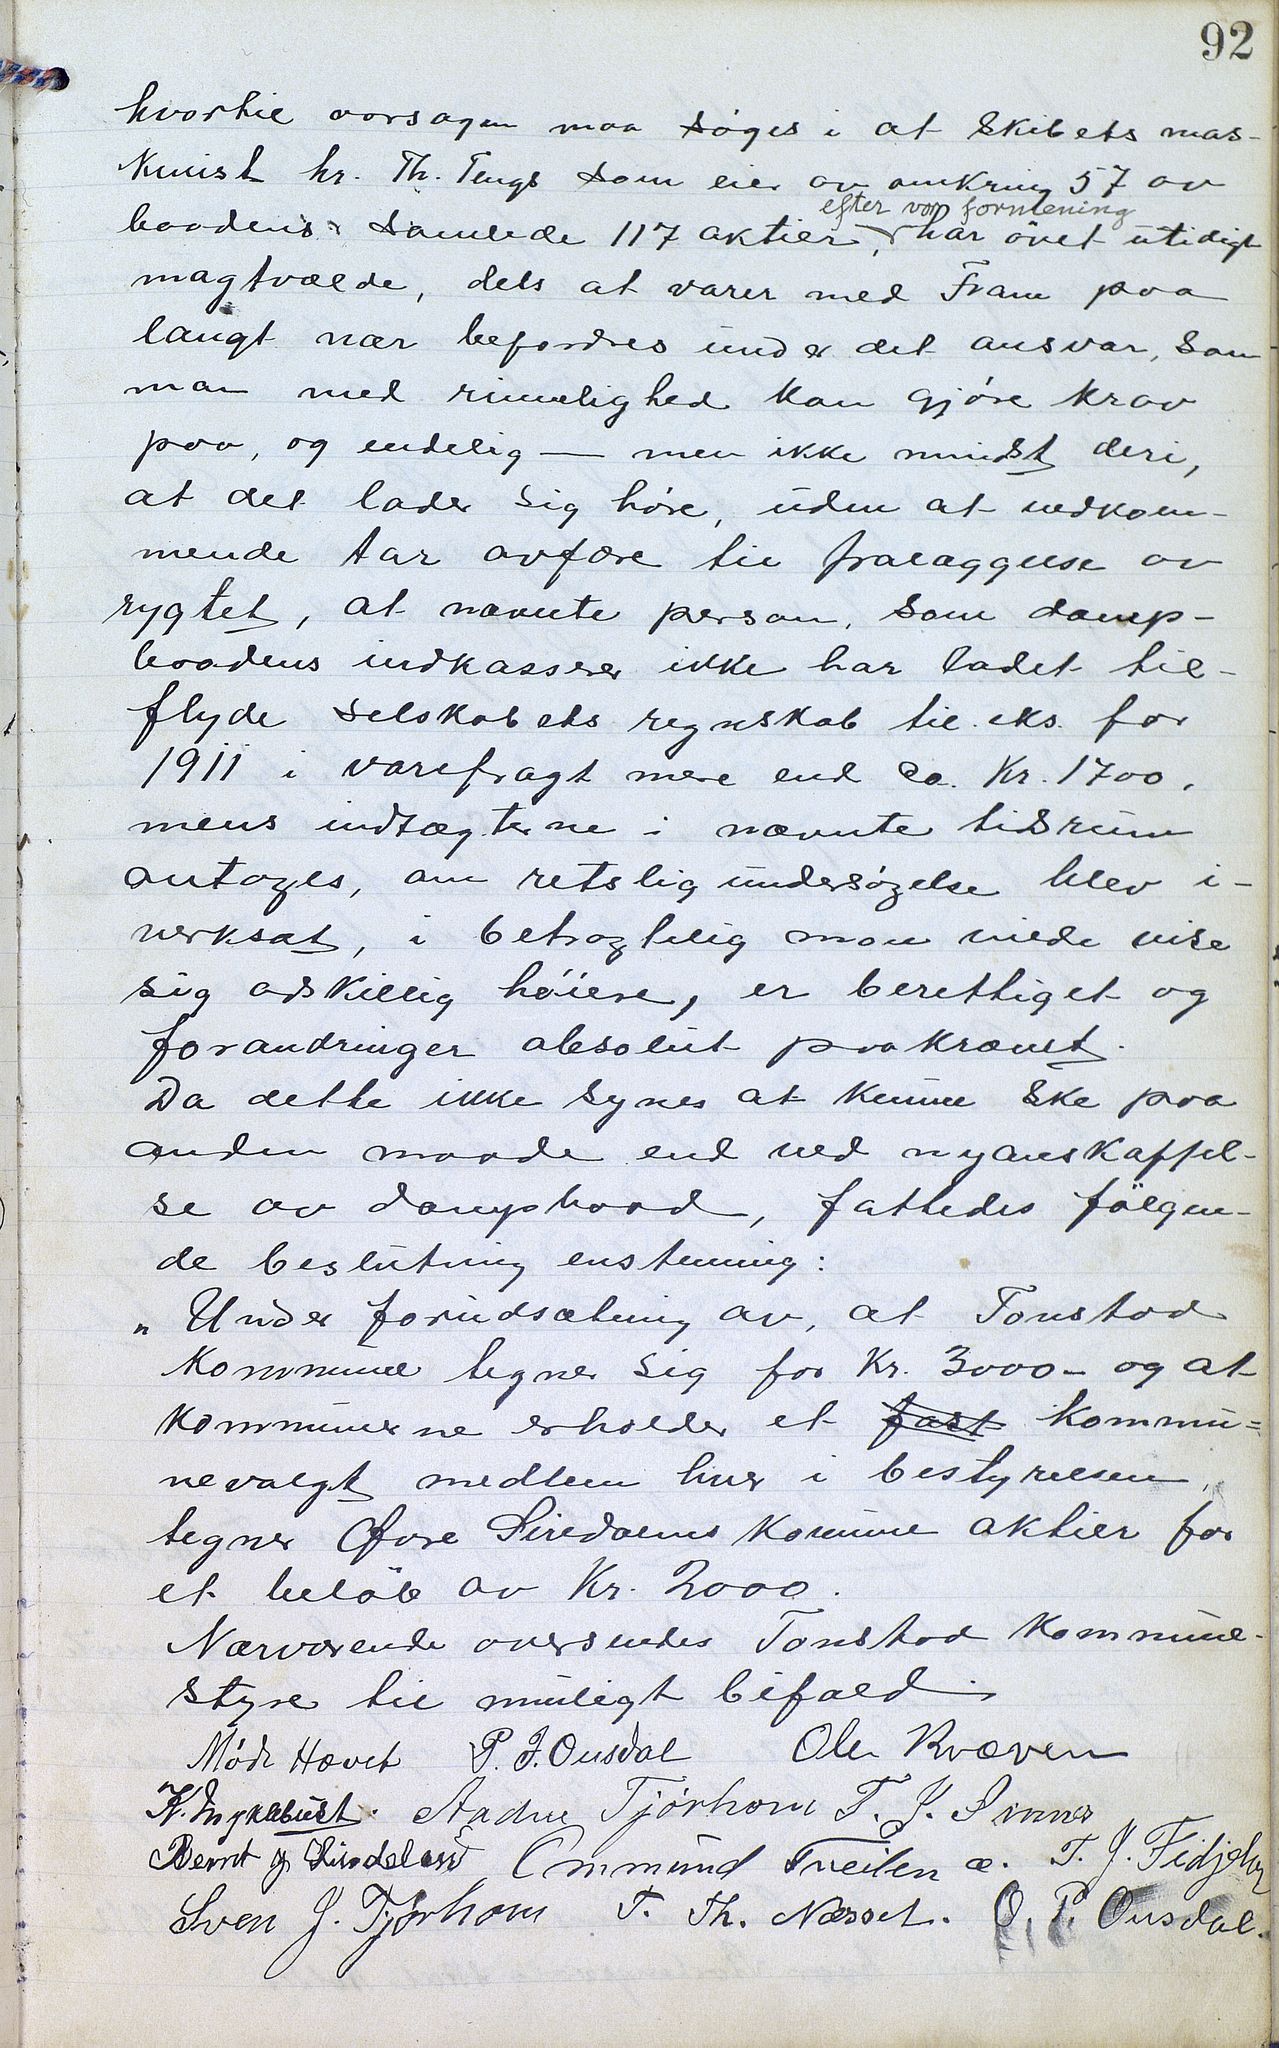 92
hvortil aarsagen maa søges i at skibets mas-
kinist hr. Th. Tengs som eier av omkring 57 av
baadens samlede 117 aktier, efter vor formening har øvet utidigt
magtvælde, dels at varer med Fram paa
langt nær befordres under det ansvar, som
man med rimelighed kan gjøre krav
paa, og endelig — men ikke mindst deri,
at det lader sig høre, uden at vedkom-
mende tar avfære til fralæggelse av
rygtet, at nævnte person, som damp-
baadens indkasserer ikke har ladet til-
flyde selskabets regnskab til eks. for
1911 i varefragt mere end ca. Kr. 1700,
mens indtægterne i nævnte tidsrum
antages, om retslig undersøgelse blev i-
verksat, i betragtelig mon vilde vise
sig adskillig høiere, er berettiget og
forandringer absolut paakrævet.
Da dette ikke synes at kunne ske paa
anden maade end ved nyanskaffel-
se av dampbaad, fattedes følgen-
de beslutning enstemmig:
„Under forudsætning av, at Tonstad
kommune tegner sig for Kr. 3000- og at
kommunerne erholder et fast kommu-
nevalgt medlem hver i bestyrelsen,
tegner Øvre Siredalens komune aktier for
et beløb av Kr. 2000.
Nærværende oversendes Tonstad kommune-
styre til muligt bifald.
Møde Hævet P. J. Ousdal Ole Kvæven
K. Inyklebust. Aadne Tjørhom T. J. Sinnes
Bernt J Lindeland Ommund Tveiten æ. T. J. Fidjeland
Sven J. Tjørhom T. Th. Næsset. O. P. Ousdal.